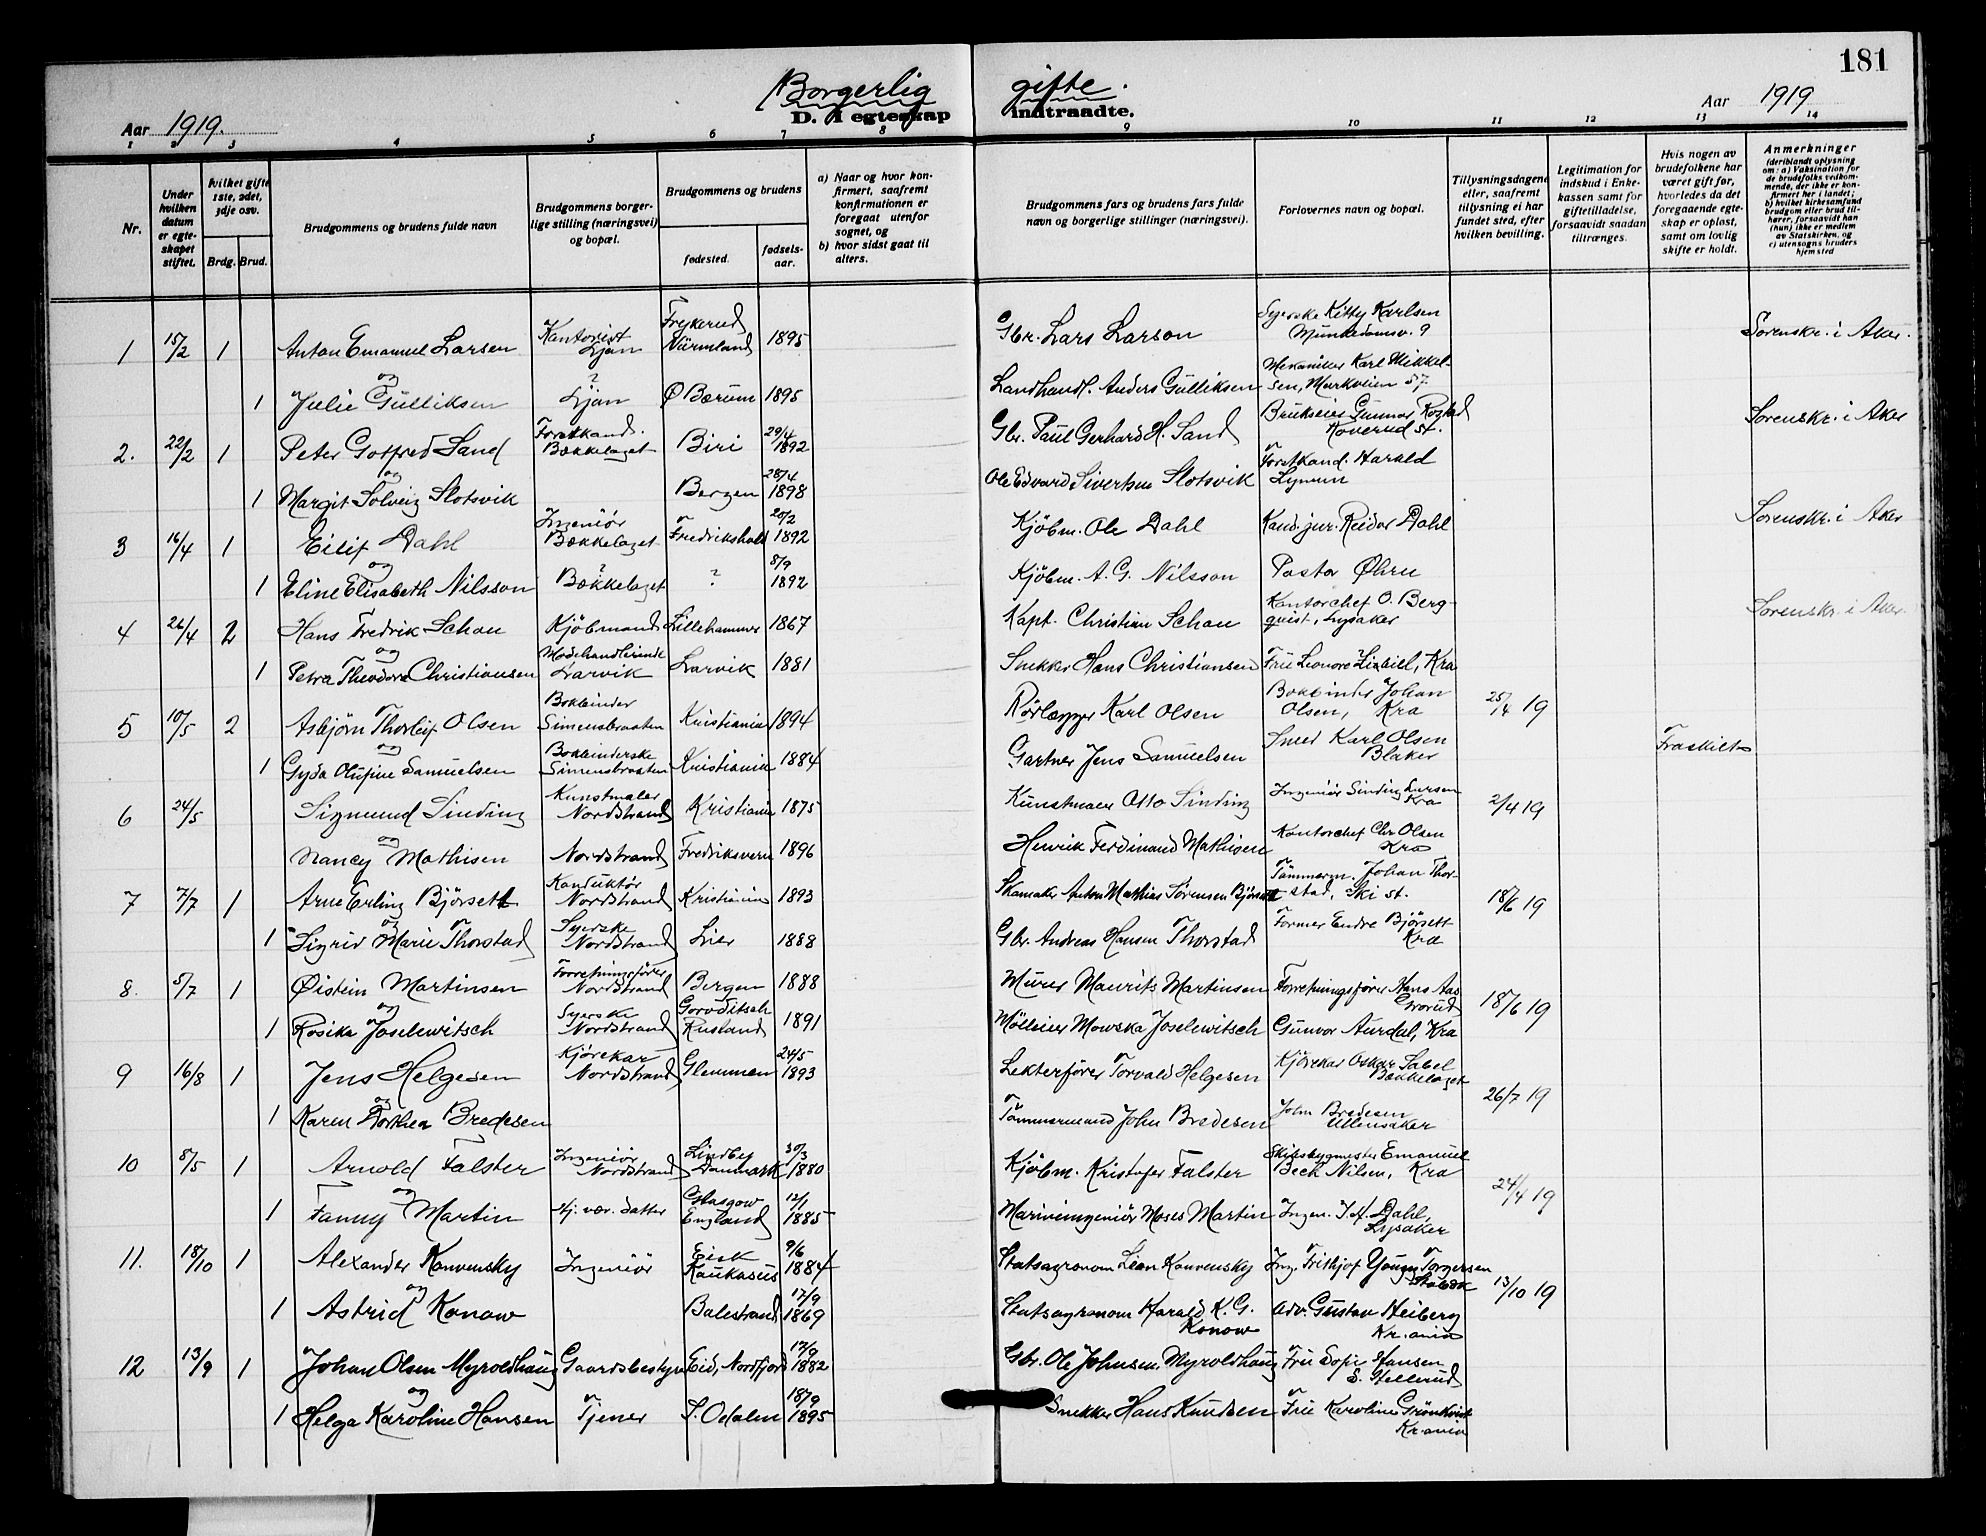 181
Borgerlig gifte.
Aar 1919.
D. I egteskap indtraadte.
Aar 1919
1 2 3 4 5 6 7 8 9 10 11 12 13 14
Nr.
Under hvilken datum er egteskapet stiftet.
hvilket gifte 1ste, 2det, 3dje osv.
Brdg. Brud.
Brudgommens og brudens fulde navn
Brudgommens borgerlige stilling (næringsvei) og bopæl.
Brudgommens og brudens
fødested.
fødselsaar.
a) Naar og hvor konfirmert, saafremt konfirmationen er foregaat utenfor sognet, og
b) hvor sidst gaat til alters.
Brudgommens fars og brudens fars fulde navn og borgerlige stillinger (næringsvei).
Forlovernes navn og bopæl.
Tillysningsdagene eller, saafremt tillysning ei har fundet sted, efter hvilken bevilling.
Legitimation for indskud i Enkekassen samt for giftetilladelse, forsaavidt saadan tiltrænges.
Hvis nogen av brudefolkene har været gift før, hvorledes da det foregaaende egteskap er opløst, samt om lovlig skifte er holdt.
Anmerkninger
(deriblandt oplysning om: a) Vaksination for de brudefolks vedkommende, der ikke er konfirmert her i landet; b) hvilket kirkesamfund brudgom eller brud tilhører, forsaavidt han (hun) ikke er medlem av Statskirken, og c) utensogns bruders hjemsted
1 15/2 1 Anton Emanuel Larsen Kontorist Ljan Frykerud Värmland 1895 Gbr. Lars Larson Syerske Kitty Karlsen Munkedamsv. 9 Sorenskr. i Aker.
og
1 Julie Gulliksen ? Ljan Ø Bærum 1895 Landhandl. Anders Gulliksen Mekaniker Karl Mikkelsen, Markveien 57
2. 22/2 1 Peter Gotfred Sand Forstkand. Bækkelaget Biri 29/4 1892 Gbr. Paul Gerhard H. Sand Brukseier Gunnar Rogstad Koverud st. Sorenskr. i Aker
og
1 Margit Solveig Slotsvik Bergen 28/4 1898 Ole Edvard Sivertsen Slotsvik Forstkand. Harald
3 16/4 1 Eilif Dahl Ingeniør Bækkelaget Fredrikshald 20/2 1892 Kjöbm. Ole Dahl Kand. jur. Reidar Dahl Sorenskr. i Aker
og
1 Eline Elisabeth Nilsson ? Bækkelaget ? 8/9 1892 Kjöbm. A. G. Nilsson Pastor Øhrn
4 26/4 2 Hans Fredrik Schou Kjöbmand Lillehammer 1867 Kapt. Christian Schou Kontorchef O. Bergquist, Lysaker Sorenskr. i Aker.
og
1 Petra Theodora Christiansen Modehandlerinde Larvik Larvik 1881 Snekker Hans Christiansen Fru Leonore, Kra
5 10/5 2 Asbjörn Thorleif Olsen Bokbinder Simensbraaten Kristiania 1894 Rörlægger Karl Olsen Bokbinder Johan Olsen, Kra 25/4 19
og
1 Gyda Olufine Samuelsen Bokbinderske Simensbraaten Kristiania 1884 Gartner Jens Samuelsen Smed Karl Olsen Blaker Fraskilt
6 24/5 Sigmund Sinding Kunstmaler Nordstrand Kristiania 1875 Kunstmaler Otto Sinding Ingeniør Sinding Larsen Kra 2/4 19
og
Nancy Mathisen Nordstrand Fredriksvern 1896 Henrik Ferdinand Mathisen Kontorchef Chr. Olsen Kra
7 7/7 1 Arne Erling Bjørsett Konduktør Nordstrand Kristiania 1893 Skomaker Anton Mathias Sørensen Bjørsett Tömmerm. Johan Thorstad, Ski st. 18/6 19
og
1 Sigrid Marie Thorstad Syerske Nordstrand Lier 1888 Gbr. Andreas Hansen Thorstad Former Endre Bjørsett Kra
8. 5/7 1 Øistein Martinsen Forretningsfører Nordstrand Bergen 1888 Murer Maurits Martinsen Forretningsfører Hans Aas Grorud 18/6 19
og
1 Rosika Joselewitsch Syerske Nordstrand Goroditsch Rusland 1891 Mölleier Mowska Joselewitsch Gunvor Aurdal, Kra
9 16/8 1 Jens Helgesen Kjörekar Nordstrand Glemmen 24/5 1893 Lekterfører Torvald Helgesen Kjörekar Oskar Sabel Bækkelaget 26/7 19
og
1 Karen Dorthea Bredesen Tömmermand John Bredesen John Bredesen Ullensaker
10 8/5 1 Arnold Falster Ingeniør Nordstrand Lindby Danmark 30/3 1880 Kjöbm. Kristofer Falster Skibsbygmester Emanuel Bech Nilsen, Kra 24/4 19
og
1 Fanny Martin Hj. vær. datter Glasgow England 12/1 1885 Marineingeniør Moses Martin Ingen. Dahl, Lysaker
11. 18/10 1 Alexander Konvensky Ingeniör Eisk Kaukasus 9/6 1884 Statsagronom Leon Konvensky Ing. Frithjof Young Torgersen Stabæk 13/10 19
og
1 Astrid Konow Balestrand 17/9 1869 Statsagronom Harald K. G. Konow Adv. Gustav Heiberg Kr.ania
12 13/9 1 Johan Olsen Myroldhaug Gaardsbestyr. Eid, Nordfjord 17/9 1882 Gbr. Ole Johnsen Myroldhaug Fru Sofie Hansen
og
1 Helga Karoline Hansen Tjener S. Odalen 18/9 1895 Snekker Hans Knudsen Fru Karoline Grönkvist Kr.ania